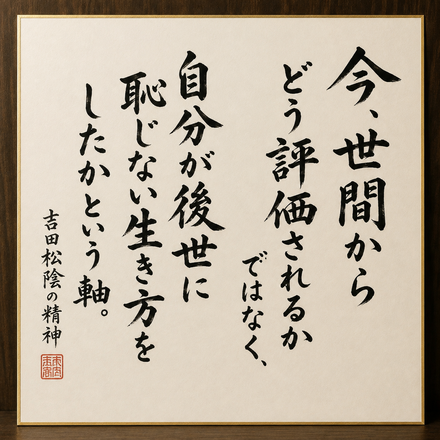 今、世間から
どう評価されるか
ではなく、
自分が後世に
恥じない生き方を
したかという軸。
吉田松陰の精神